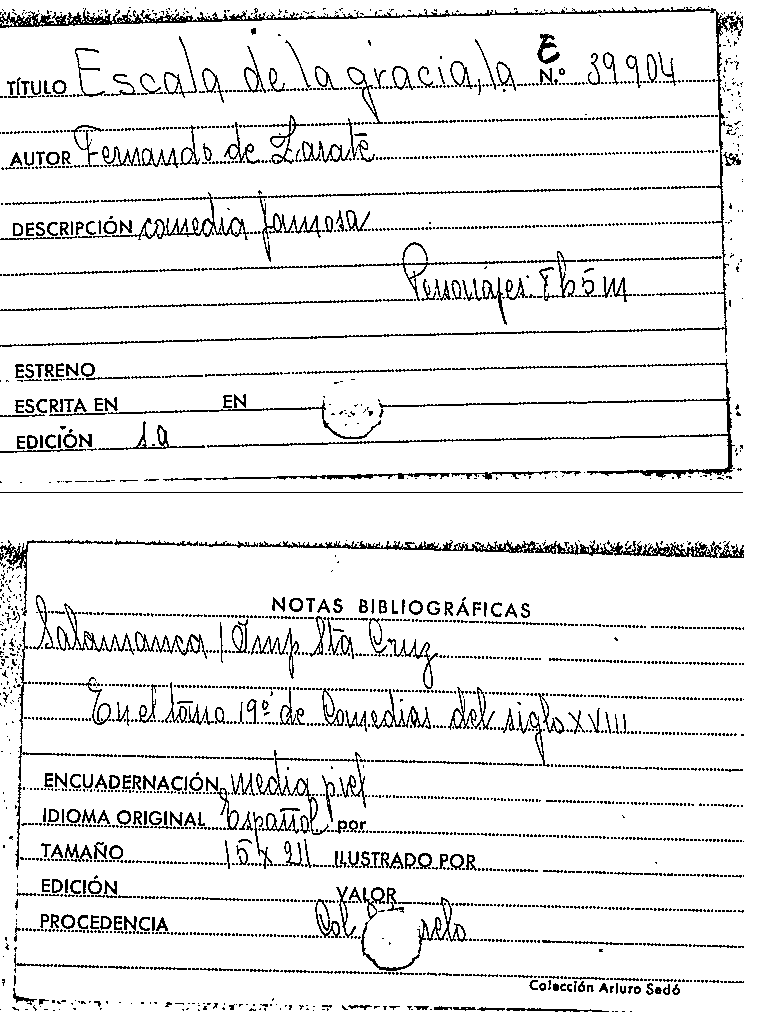 TÍTULO Escala de la gracia, la E N.º 39904
AUTOR Fernando de Zarate
DESCRIPCIÓN comedia famosa
Personajes
ESTRENO
ESCRITA EN EN
EDICIÓN s.a
NOTAS BIBLIOGRÁFICAS
Salamanca / Imp Sta Cruz
En el tomo 19º de Comedias del siglo XVIII
ENCUADERNACIÓN media piel
IDIOMA ORIGINAL Español por
TAMAÑO 15 x 211 ILUSTRADO POR
EDICIÓN VALOR
PROCEDENCIA Col
Colección Arturo Sedó